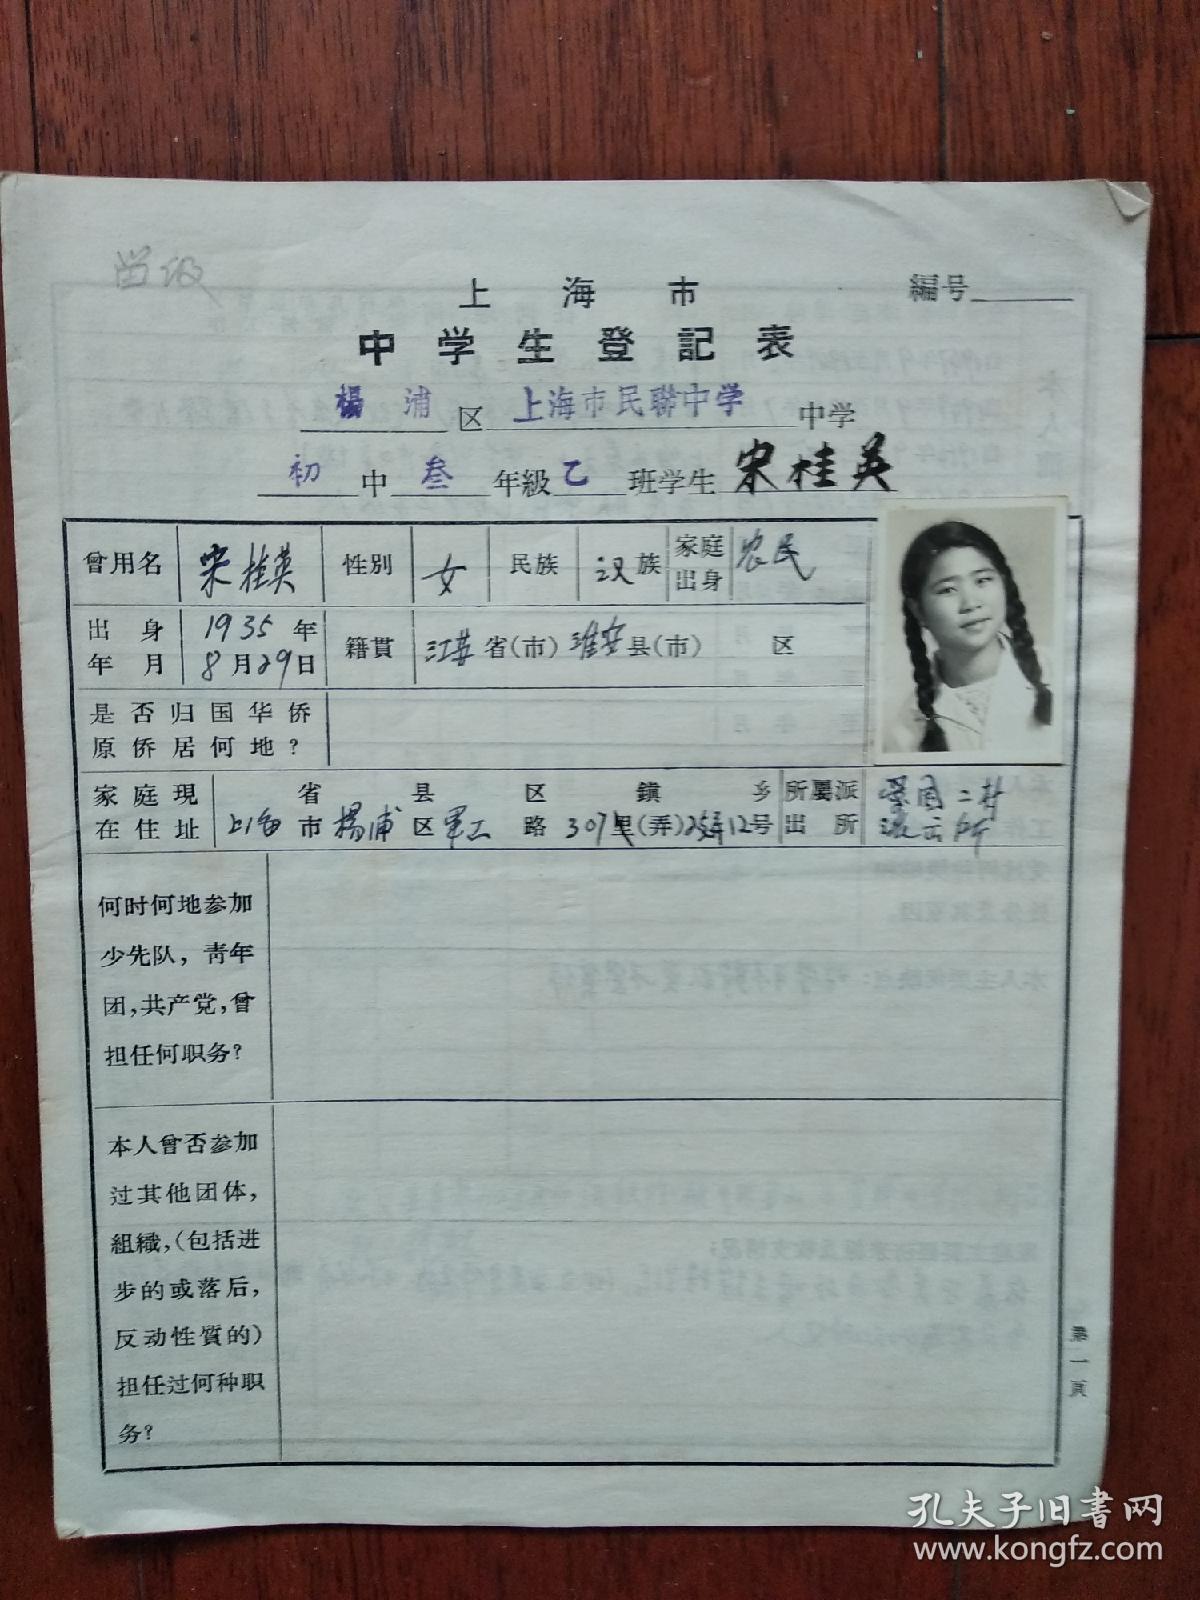 留级
上海市
編号
中学生登記表
楊浦区上海市民聯中学中学
初中叁年級乙班学生宋桂英
曾用名 宋桂英 性別 女 民族 汉族 家庭出身 农民
出身年月 1935年8月29日 籍貫 江苏省(市)淮安县(市) 区
是否归国华侨
原侨居何地?
家庭現 省 县 区 鎮 乡 所屬派
在住址 上海市楊浦区军工路307里(弄)25弄12号 出所
二村
何时何地参加
少先队，青年
团，共产党，曾
担任何职务?
本人曾否参加
过其他团体，
組織，(包括进
步的或落后，
反动性質的)
担任过何种职
务?
第一頁
孔夫子旧书网
www.kongfz.com